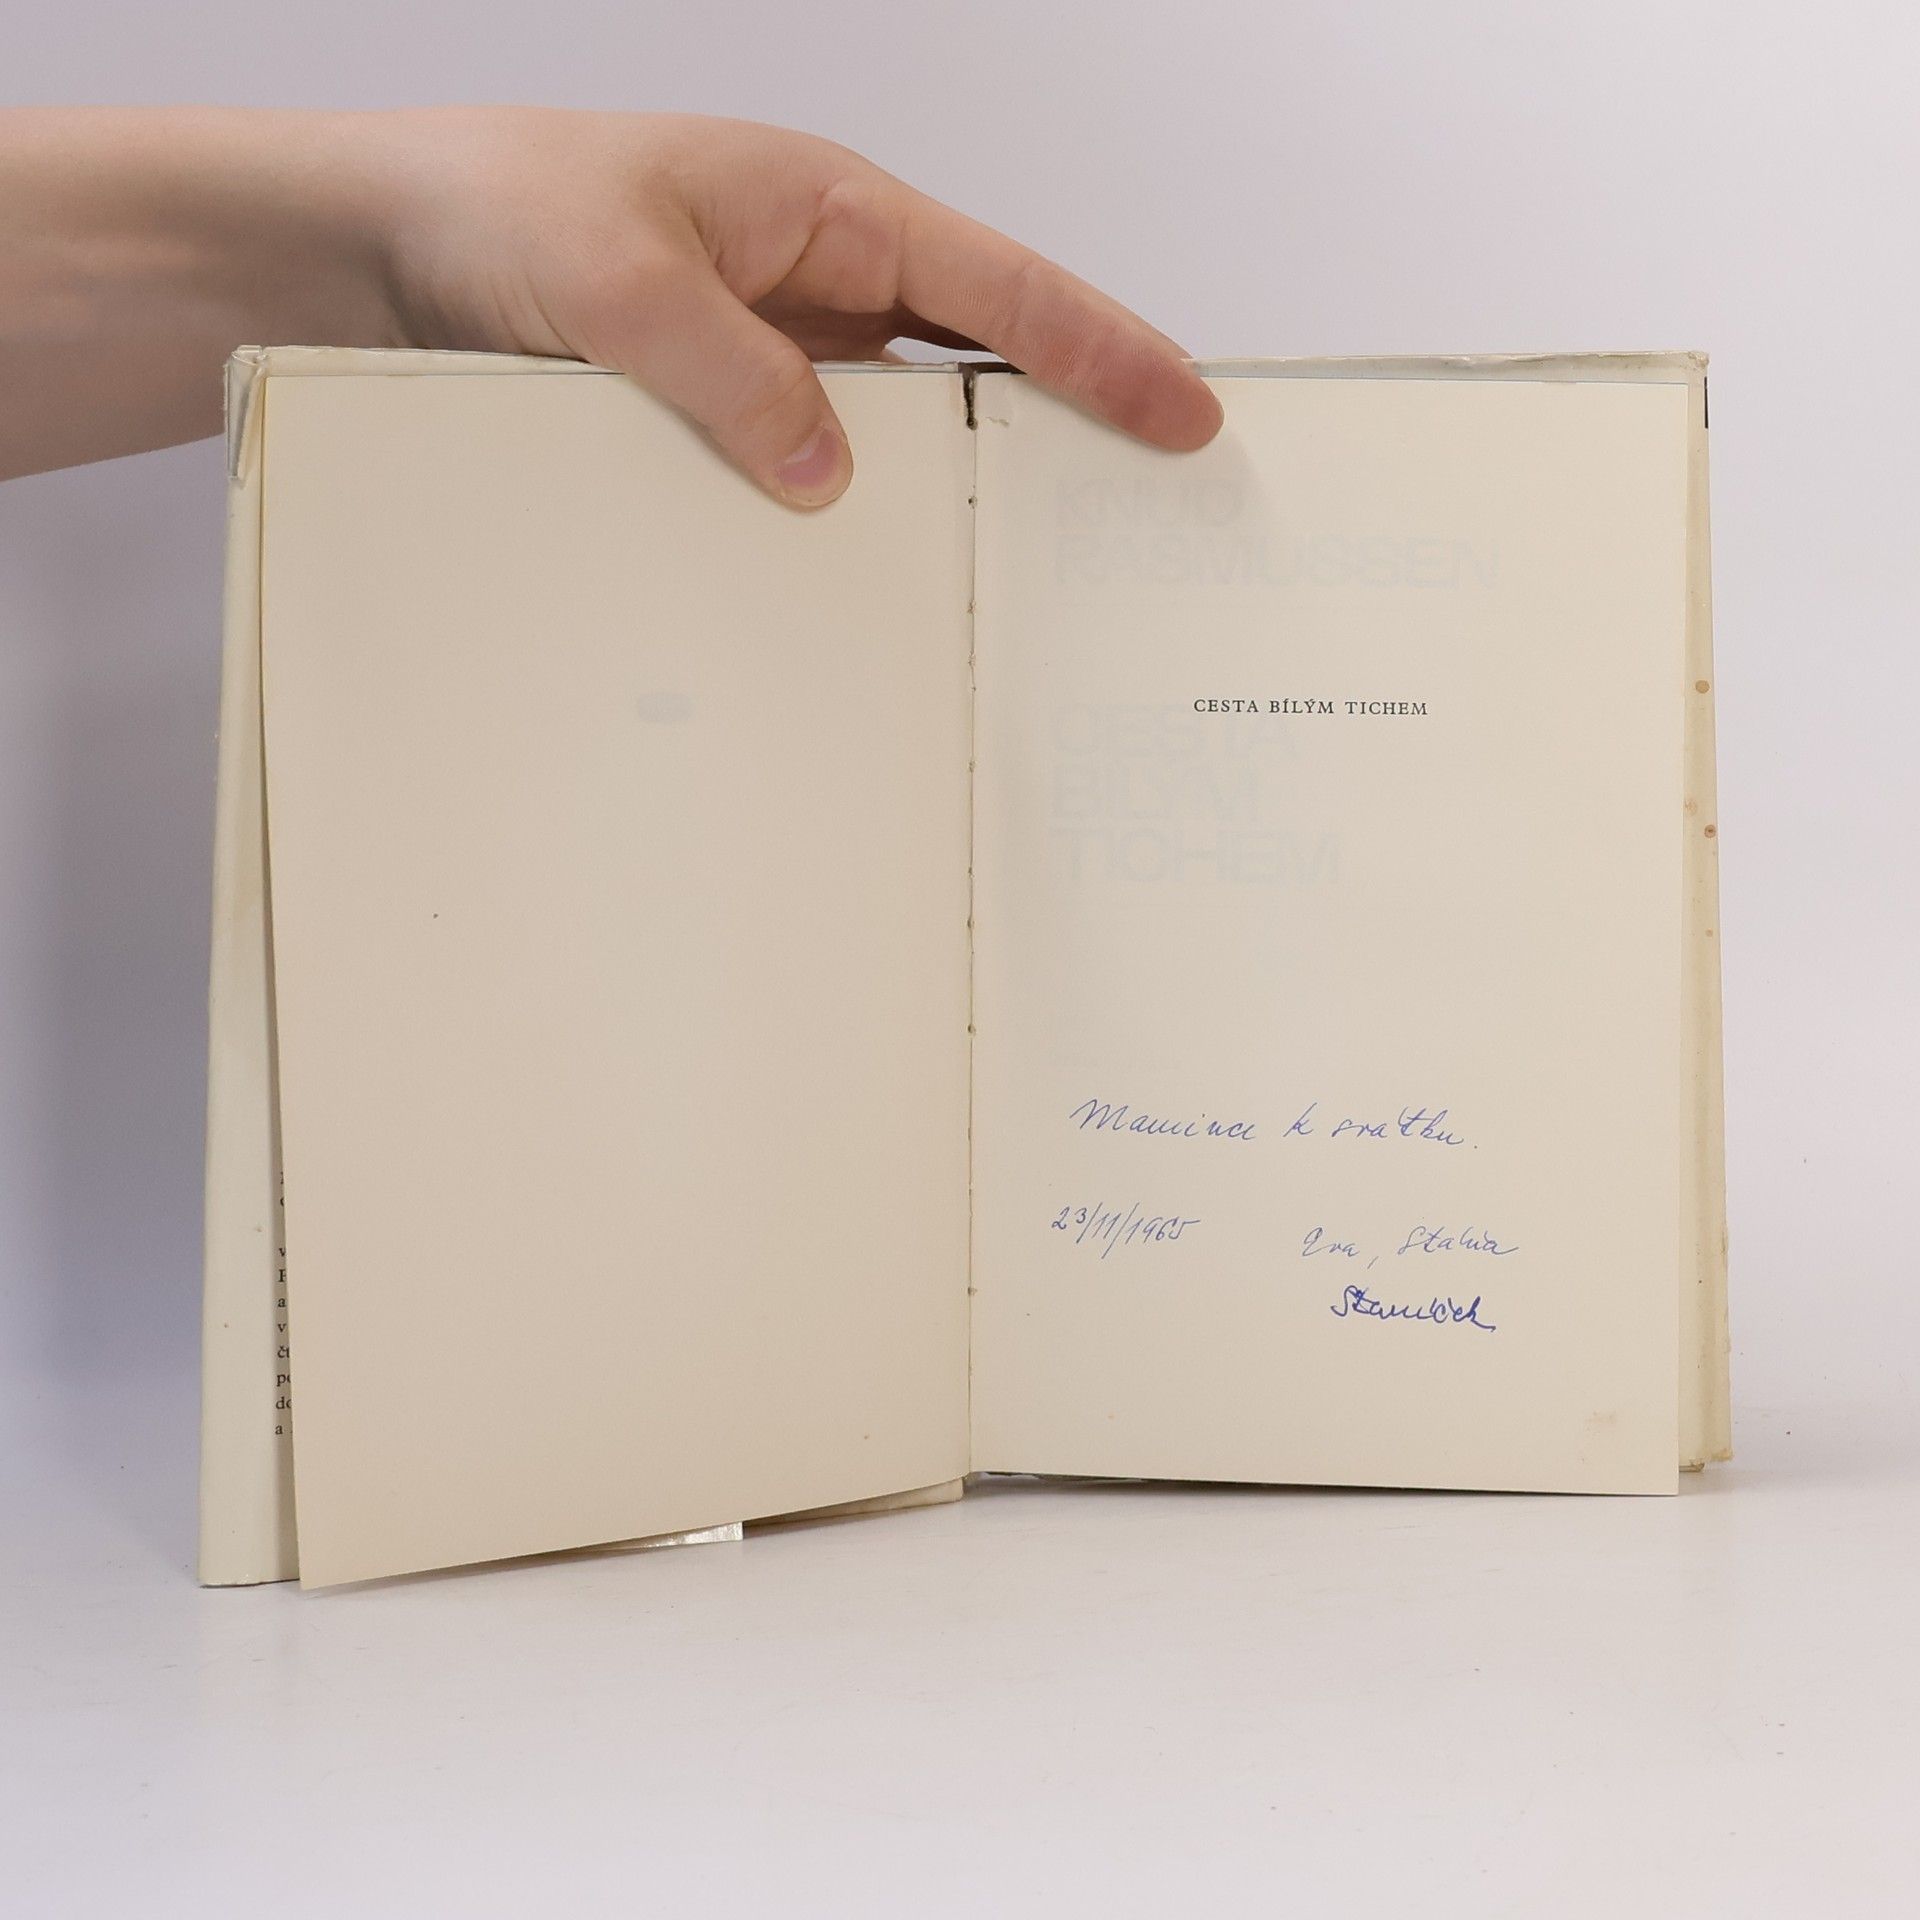 KNUD
RASMUSSEN
CESTA BÍLÝM TICHEM
CESTA
BÍLÝM
TICHEM
Mamince k svátku.
23/11/1965
Eva, Stáňa
Staníček
v
a
v
čt
po
do
a